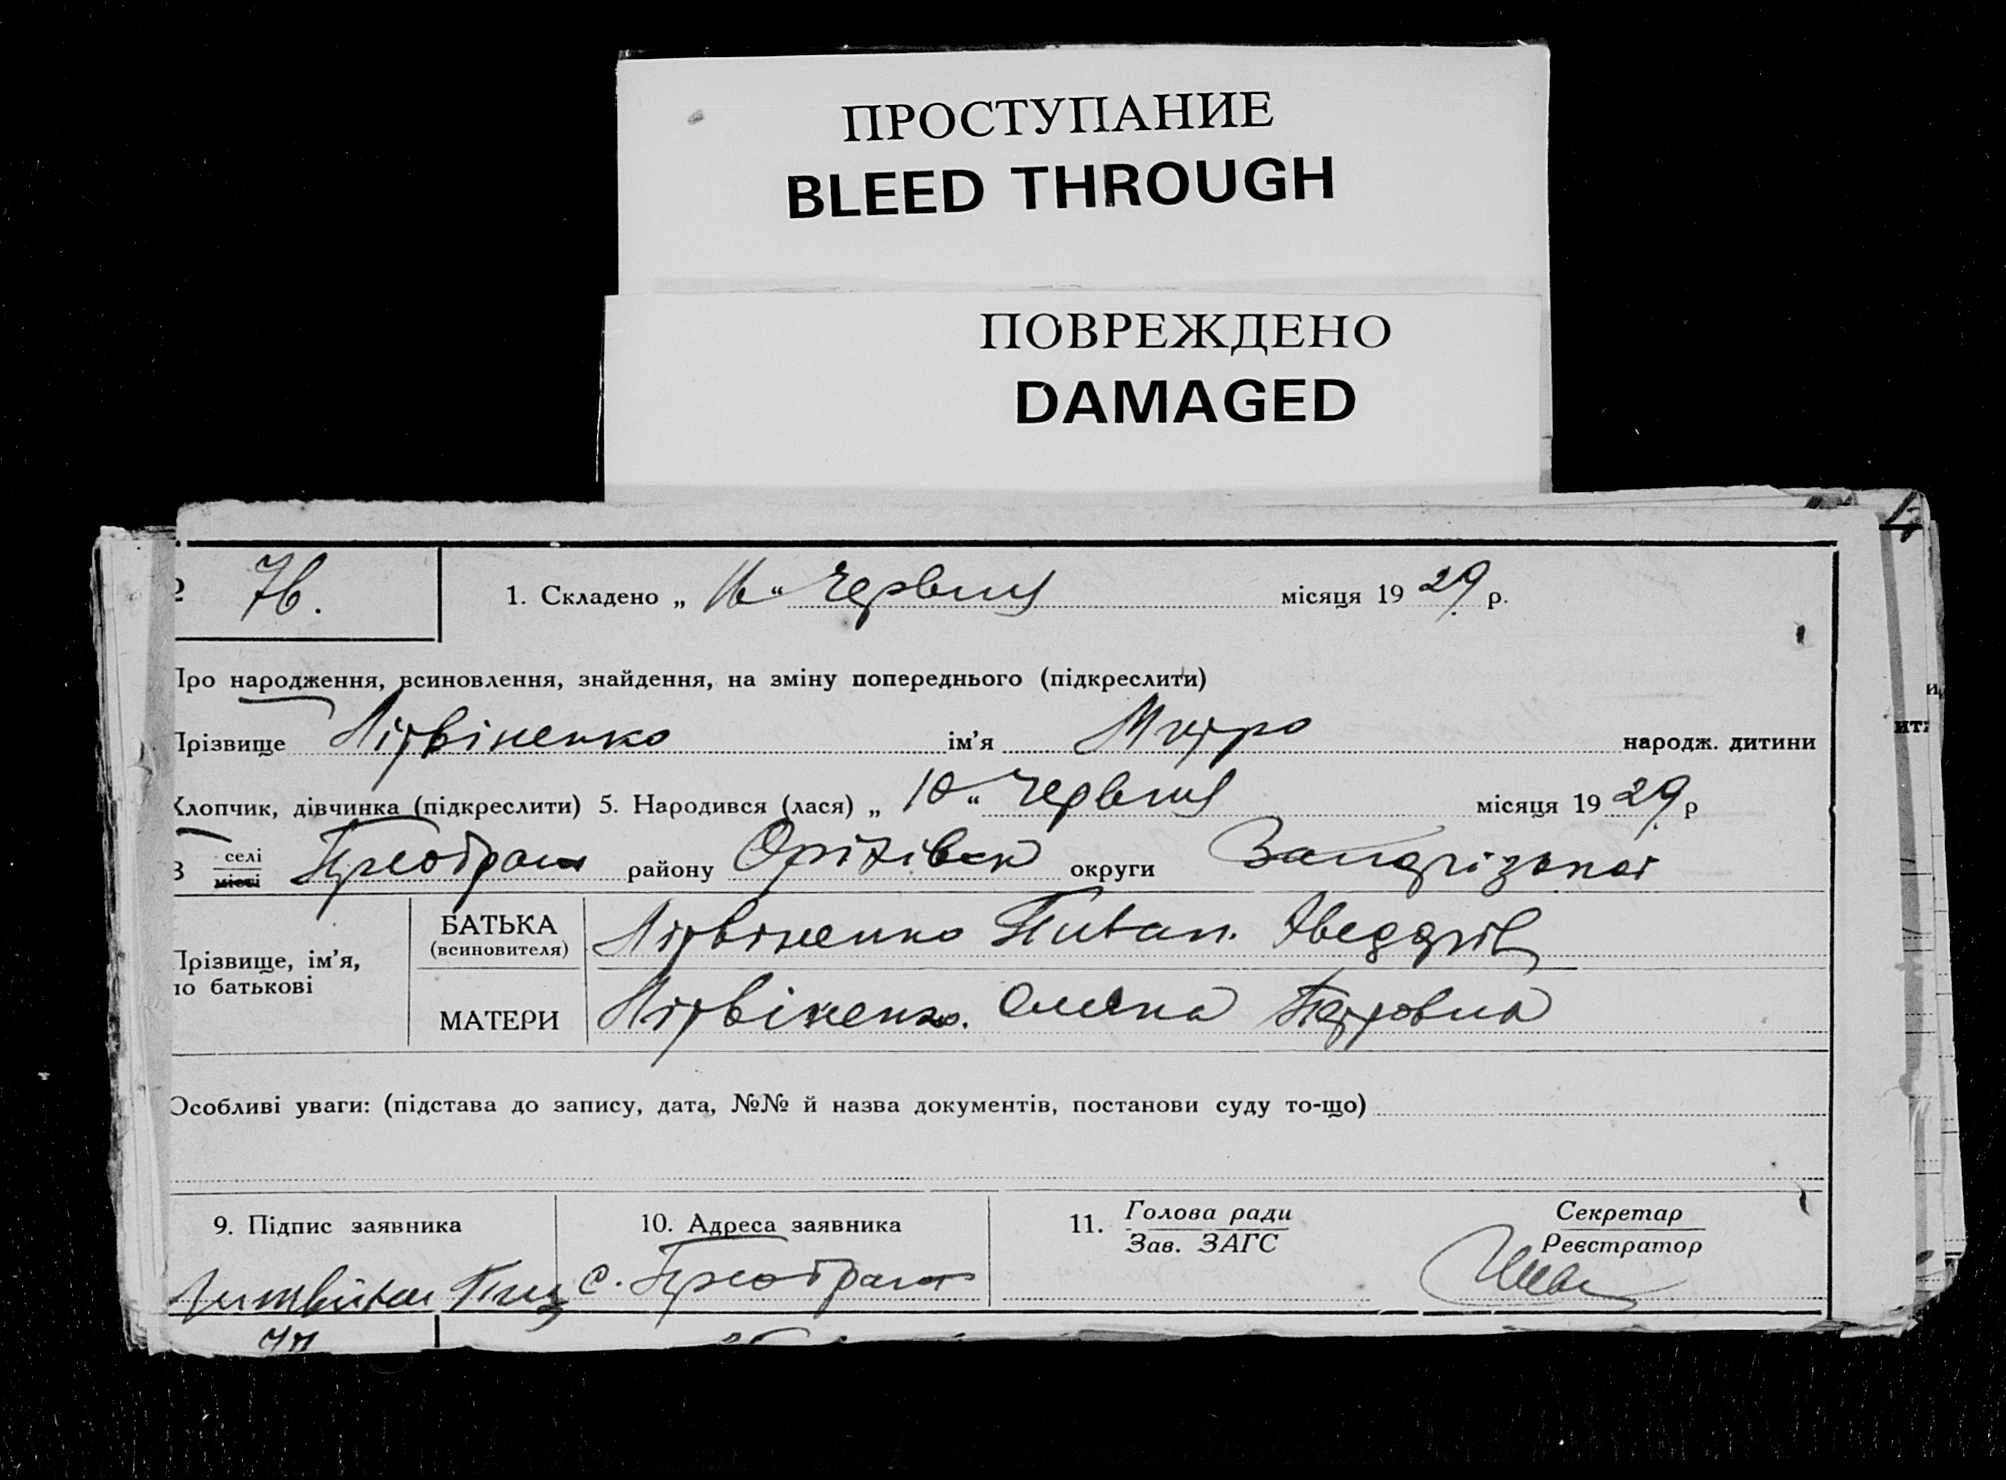 ПРОСТУПАНИЕ
BLEED THROUGH
ПОВРЕЖДЕНО
DAMAGED
76.
1. Складено „ 16 “ Червня місяця 19 29 р.
Про народження, всиновлення, знайдення, на зміну попереднього (підкреслити)
Прізвище Літвіненко ім’я Митро народж. дитини
Хлопчик, дівчинка (підкреслити) 5. Народився (лася) „ 10 “ Червня місяця 19 29 р
в селі
місті
Преображ району Оріхівськ округи Запорізької
Прізвище, ім’я,
по батькові
БАТЬКА
(всиновителя)
Літвіненко
МАТЕРИ
Літвіненко. Олена Петровна
Особливі уваги: (підстава до запису, дата, №№ й назва документів, постанови суду то-що)
9. Підпис заявника
10. Адреса заявника
с. Преображ
11. Голова ради
Зав. ЗАГС
Секретар
Реєстратор